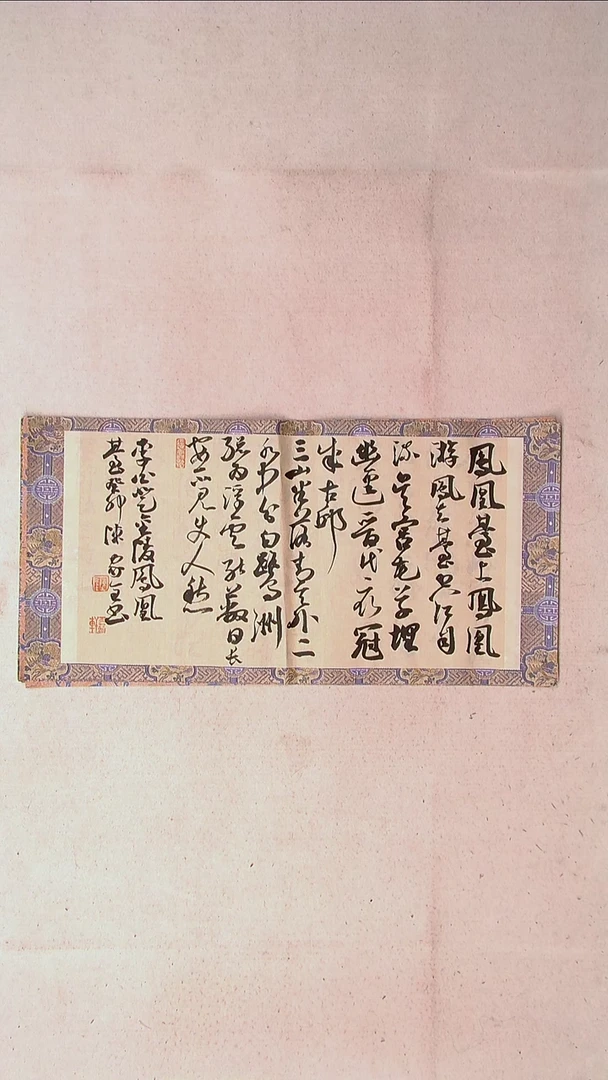 鳳凰臺上鳳凰
游鳳去臺空江自
流吳宮花草埋
幽徑晉代衣冠
成古邱
三山半落青天外二
水中分白鷺洲
總為浮雲能蔽日長
安不見使人愁
李白登金陵鳳凰
臺癸卯陳家書